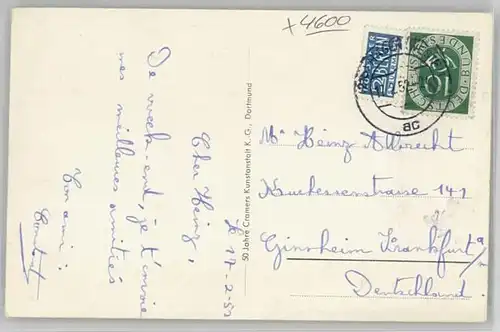 x 4600
le 17-2-52
Cher Heinz,
De week-end, je t'envoie
mes meilleures amitiés
Ton ami:
50 Jahre Cramers Kunstanstalt K. G., Dortmund
NOTOPFER
2 BERLIN
DEUTSCHE BUNDESPOST
10
ac
Mr Heinz Albrecht
Kurhessenstrasse 141
Ginnheim Frankfurt a/
Deutschland